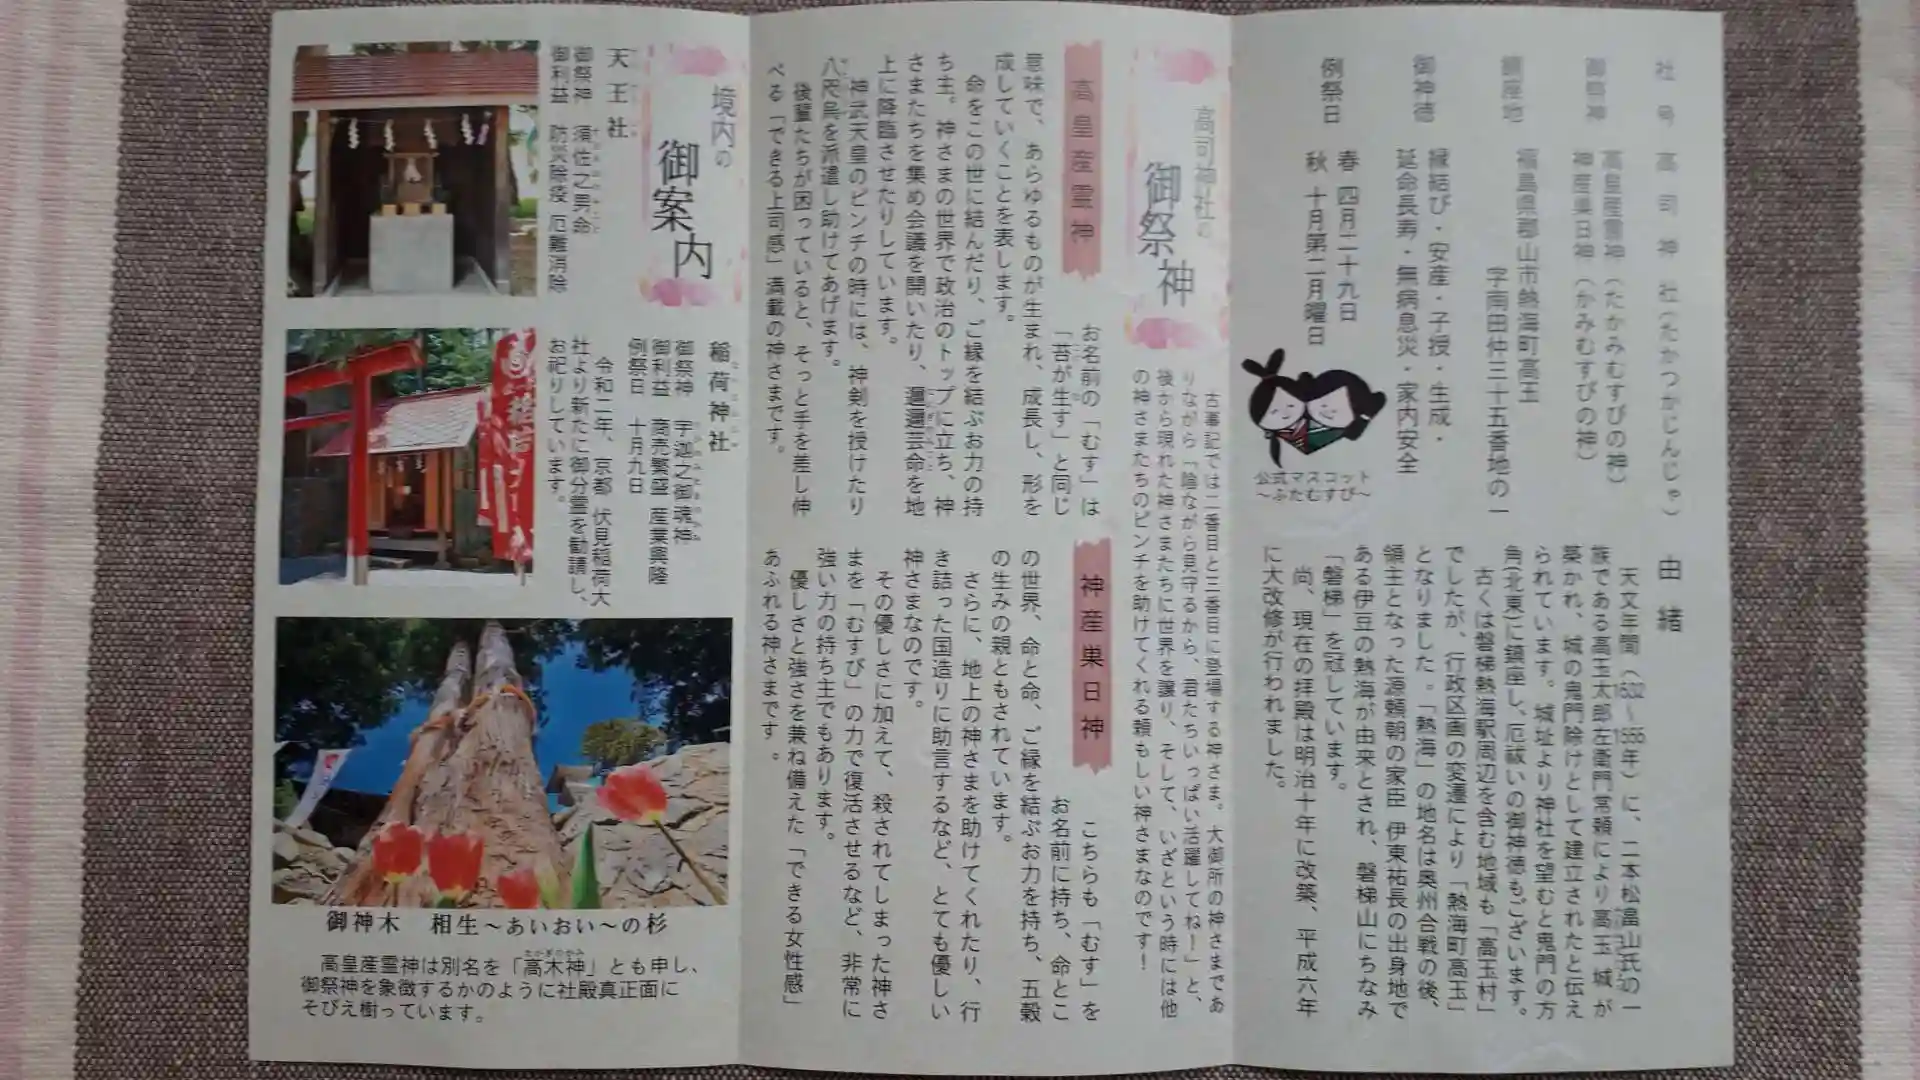 社号 高司神社(たかつかじんじゃ)
御祭神 高皇産霊神(たかみむすびの神)
神産巣日神(かみむすびの神)
鎮座地 福島県郡山市熱海町高玉
字南田仲三十五番地の一
御神徳 縁結び・安産・子授・生成・
延命長寿・無病息災・家内安全
例祭日 春 四月二十九日
秋 十月第二月曜日
公式マスコット
~ふたむすび~
由緒
天文年間(1532~1555年)に、二本松畠山氏の一
族である高玉太郎左衛門常頼により高玉城が
築かれ、城の鬼門除けとして建立されたと伝え
られています。城址より神社を望むと鬼門の方
角(北東)に鎮座し、厄祓いの御神徳もございます。
古くは磐梯熱海駅周辺を含む地域も「高玉村」
でしたが、行政区画の変遷により「熱海町高玉」
となりました。「熱海」の地名は奥州合戦の後、
領主となった源頼朝の家臣 伊東祐長の出身地で
ある伊豆の熱海が由来とされ、磐梯山にちなみ
「磐梯」を冠しています。
尚、現在の拝殿は明治十年に改築、平成六年
に大改修が行われました。
高司神社の
御祭神
古事記では二番目と三番目に登場する神さま。大御所の神さまであ
りながら「陰ながら見守るから、君たちいっぱい活躍してね!」と、
後から現れた神さまたちに世界を譲り、そして、いざという時には他
の神さまたちのピンチを助けてくれる頼もしい神さまなのです!
高皇産霊神
お名前の「むす」は
「苔が生す」と同じ
意味で、あらゆるものが生まれ、成長し、形を
成していくことを表します。
命をこの世に結んだり、ご縁を結ぶお力の持
ち主。神さまの世界で政治のトップに立ち、神
さまたちを集め会議を開いたり、邇邇芸命を地
上に降臨させたりしています。
神武天皇のピンチの時には、神剣を授けたり
八咫烏を派遣し助けてあげます。
後輩たちが困っていると、そっと手を差し伸
べる「できる上司感」満載の神さまです。
神産巣日神
こちらも「むす」を
お名前に持ち、命とこ
の世界、命と命、ご縁を結ぶお力を持ち、五穀
の生みの親ともされています。
さらに、地上の神さまを助けてくれたり、行
き詰った国造りに助言するなど、とても優しい
神さまなのです。
その優しさに加えて、殺されてしまった神さ
まを「むすび」の力で復活させるなど、非常に
強い力の持ち主でもあります。
優しさと強さを兼ね備えた「できる女性感」
あふれる神さまです。
境内の
御案内
天王社
御祭神 須佐之男命
御利益 防災除疫 厄難消除
稲荷神社
御祭神 宇迦之御魂神
御利益 商売繁盛 産業興隆
例祭日 十月九日
令和二年、京都 伏見稲荷大
社より新たに御分霊を勧請し、
お祀りしています。
御神木 相生~あいおい~の杉
高皇産霊神は別名を「高木神」とも申し、
御祭神を象徴するかのように社殿真正面に
そびえ樹っています。